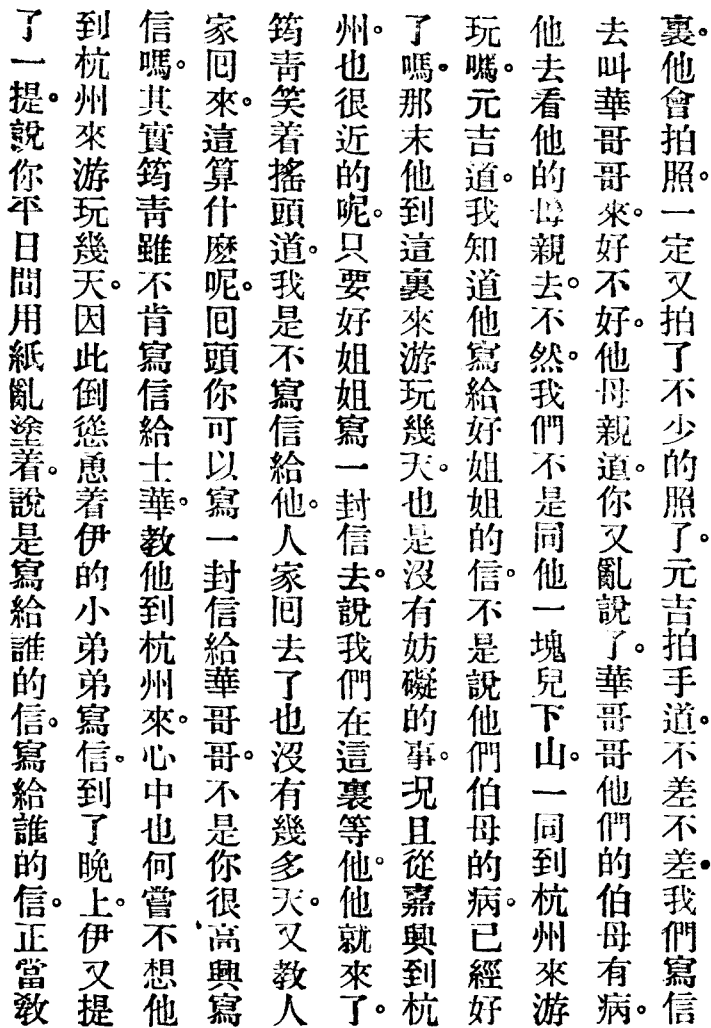 裏。他會拍照。一定又拍了不少的照了。元吉拍手道。不差不差。我們寫信
去叫華哥哥來。好不好。他母親道。你又亂說了。華哥哥他們的伯母有病。
他去看他的母親去。不然。我們不是同他一塊兒下山。一同到杭州來游
玩嗎。元吉道。我知道他寫給好姐姐的信。不是說他們伯母的病。已經好
了嗎。那末他到這裏來游玩幾天。也是沒有妨礙的事。况且從嘉興到杭
州。也很近的呢。只要好姐姐寫一封信去。說我們在這裏等他。他就來了。
筠青笑着搖頭道。我是不寫信給他。人家囘去了也沒有幾多天。又教人
家囘來。這算什麽呢。囘頭你可以寫一封信給華哥哥。不是你很高興寫
信嗎。其實筠青雖不肯寫信給士華。教他到杭州來。心中也何嘗不想他
到杭州來游玩幾天。因此倒慫恿着伊的小弟弟寫信。到了晚上。伊又提
了一提。說你平日間用紙亂塗着。說是寫給誰的信。寫給誰的信。正當教